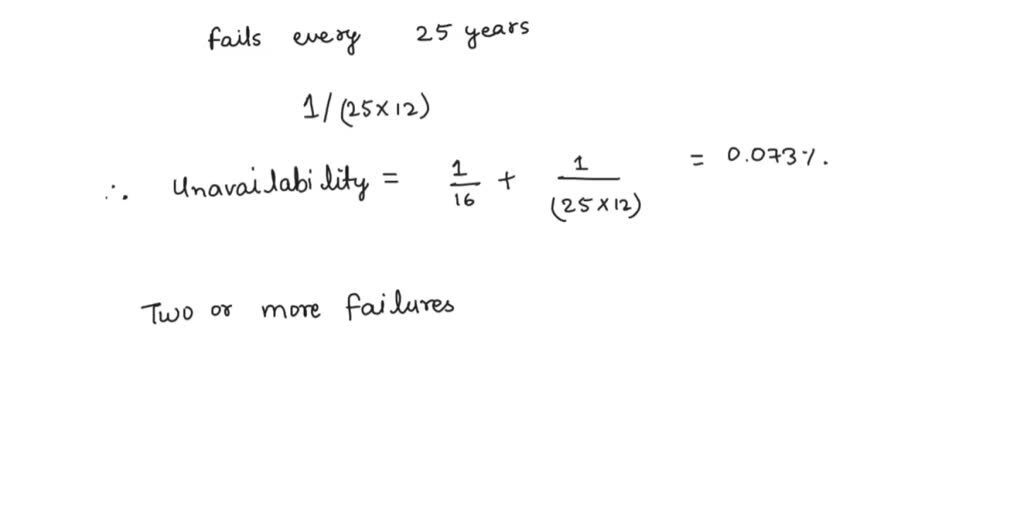 fails every 25 years
1/(25×12)
∴ Unavailability = 1/16 + 1/(25×12) = 0.073%.
Two or more failures